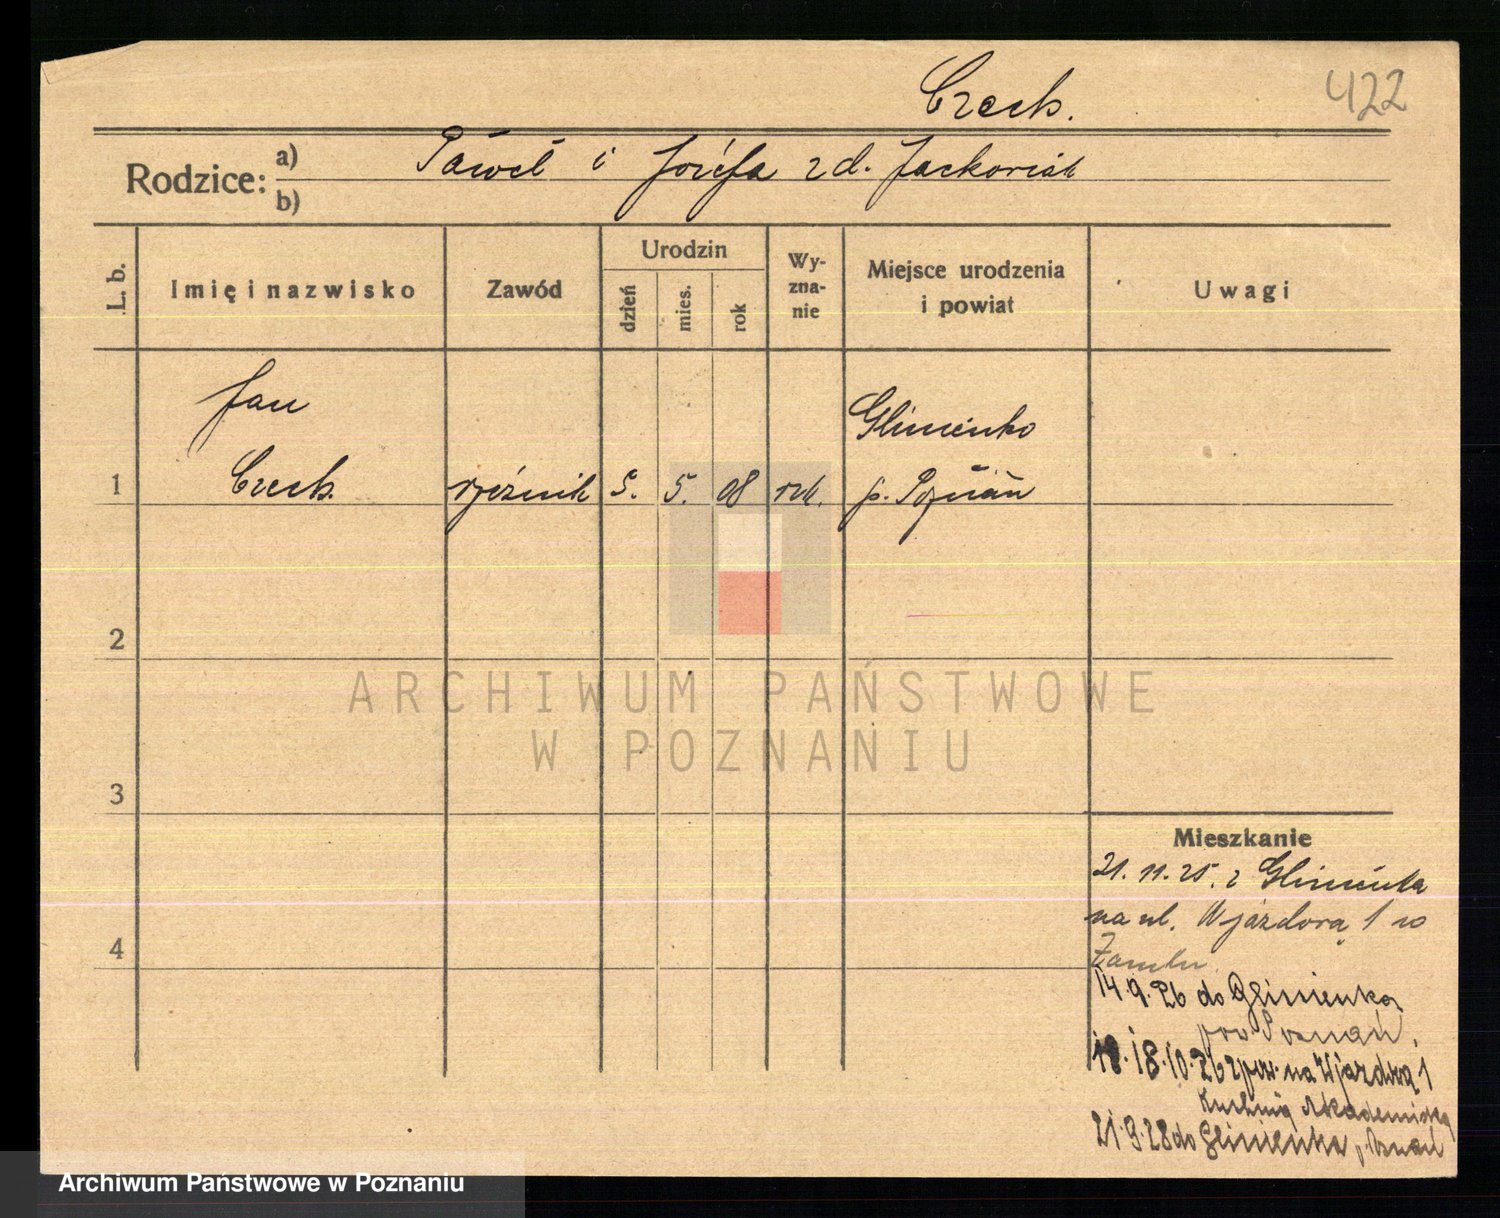 Czech.
422
Rodzice: a) Paweł i Józefa z d. Jackowiak
b)
L. b.
Imię i nazwisko
Zawód
Urodzin
dzień
mies.
rok
Wy-
zna-
nie
Miejsce urodzenia
i powiat
Uwagi
Jan
Glinienko
1 Czech. rzeźnik 5. 5. 08 rzk. p. Poznań
2
ARCHIWUM PAŃSTWOWE
W POZNANIU
3
Mieszkanie
21.11.25. z Glinienka
na ul. Wjazdową 1 w
4
Zamku
14.9.26 do Glinienka
pow. Poznań.
18.10.26 z pow. na Wjazdową 1
Kuchnia Akademicka
21.9.28 do Glinienka p. Poznań
Archiwum Państwowe w Poznaniu